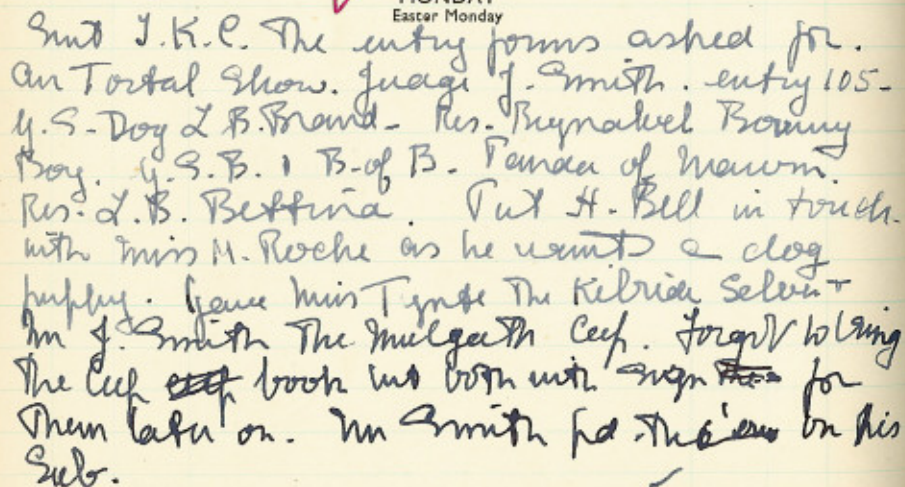 MONDAY
Easter Monday
Sent I.K.C. The entry forms asked for.
An Tostal Show. Judge J. Smith. entry 105-
G.S-Dog L B. Brand- Res- Bonny
Boy. G.S.B. 1 B-of B. Panda of
Res- L.B. Bettina. Put H. Bell in touch-
with Miss M. Roche as he wants a dog
puppy. Gave Miss Tynte The Kilbride Salver +
Mr J. Smith The Mulgath Cup. Forgot to bring
The Cup book but both will sign for
Them later on. Mr Smith pd. on his
Sub.